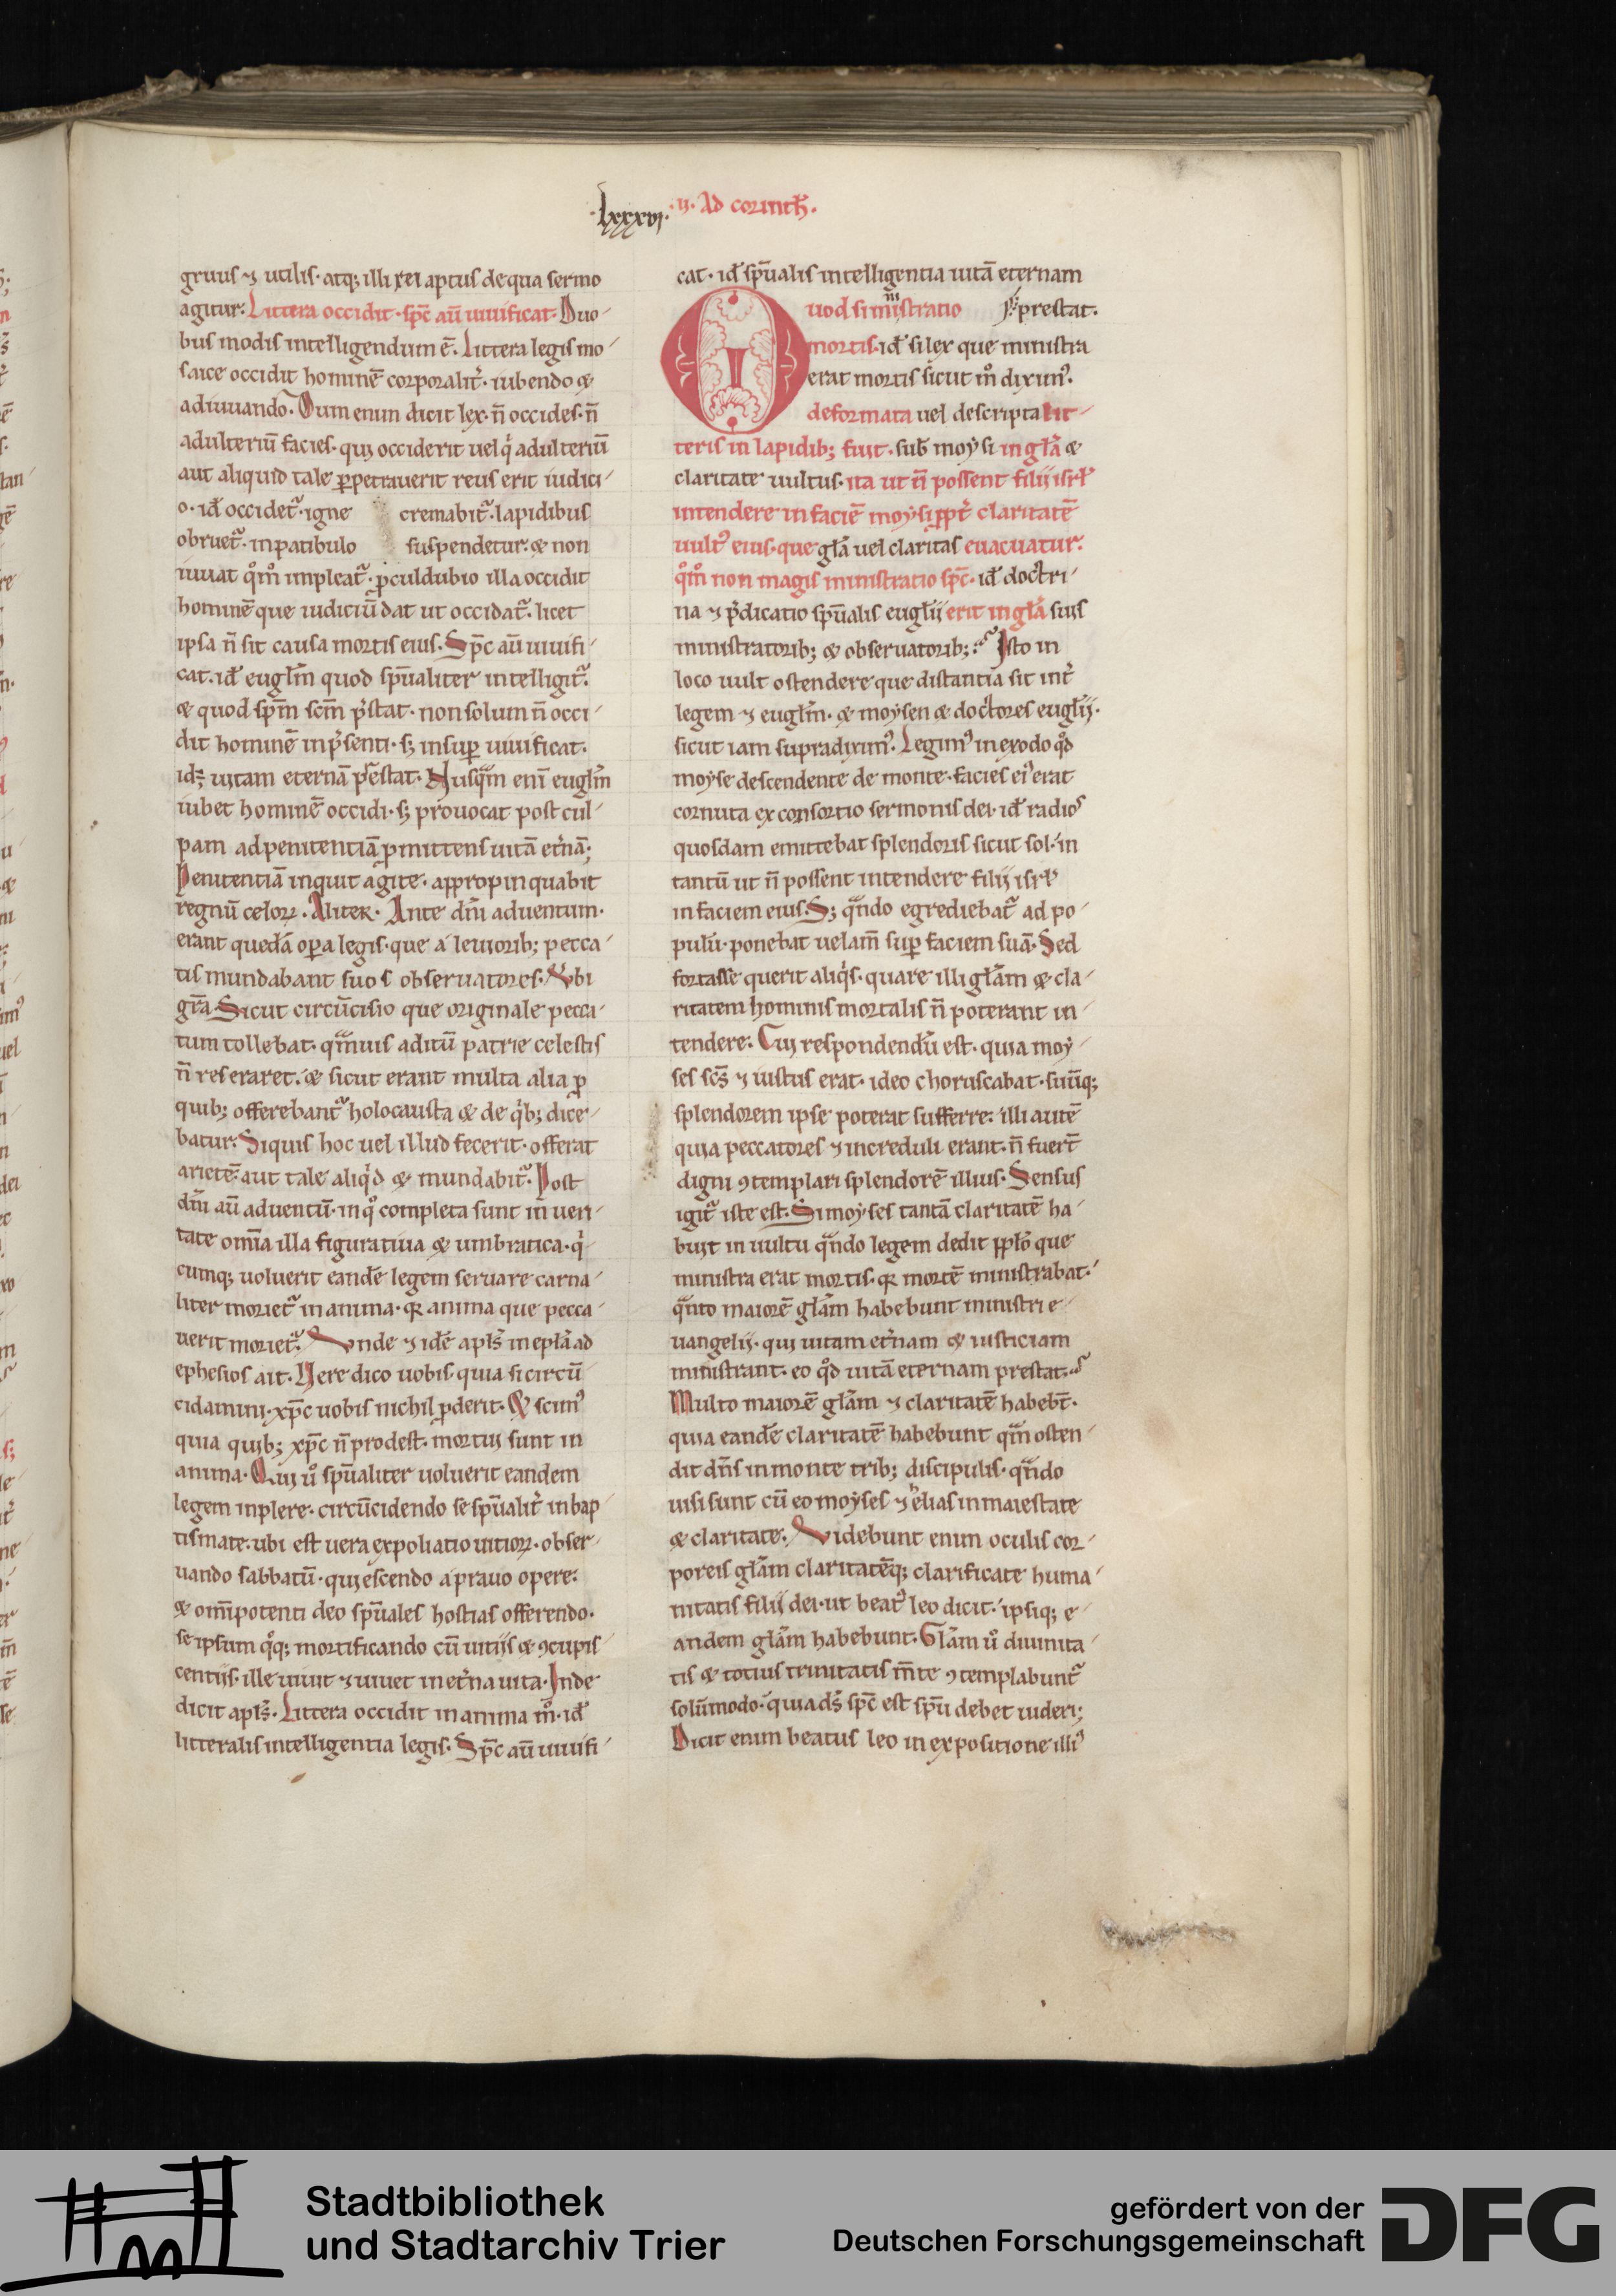 ·lxxxvi· ·ii· Ad corinth̄·
gruus ⁊ utilis· atq; illi rei aptus de qua sermo
agitur· Littera occidit· sp̄c aū uiuificat· Duo-
bus modis intelligendum ē· Littera legis mo-
saice occidit hominē corporalit̾· iubendo &
adiuuando· Cum enim dicit lex· n̄ occides· n̄
adulteriū facies· qui occiderit uel q̇ adulteriū
aut aliquid tale ꝑpetrauerit reus erit iudici-
o· id̄ occidet᷑· igne cremabit᷑· lapidibus
obruet᷑· in patibulo suspendetur· & non
iuuat q̊m̊ impleat᷑· ꝓculdubio illa occidit
hominē que iudiciū dat ut occidat᷑· licet
ipsa n̄ sit causa mortis eius· Sp̄c aū uiuifi-
cat· id̄ eugl̄m quod sp̄ualiter intelligit᷑·
& quod sp̄m sc̄m p̄stat· non solum n̄ occi-
dit hominē in p̄senti· s; insuꝑ uiuificat·
id; uitam eternā prestat· Nusqᷓm eni eugl̄m
iubet hominē occidi· s; prouocat post cul-
pam ad penitentiā ꝓmittens uitā et̾nā;
Penitentiā inquit agite· appropinquabit
regnū celoꝝ· Aliter· Ante dn̄i aduentum·
erant quedā oꝑa legis· que a leuiorib; pecca-
tis mundabant suos obseruatores· Vbi
gr̄a· Sicut circūcisio que originale pecca-
tum tollebat· qᷓmuis aditū patrie celestis
n̄ reseraret· & sicut erant multa alia ꝑ
quib; offerebant᷑ holocausta & de q̇b; dice-
batur· Siquis hoc uel illud fecerit· offerat
arietē· aut tale aliq̇d & mundabit᷑· Post
dn̄i aū aduentū· in q̊ completa sunt in ueri-
tate om̄ia illa figuratiua & umbratica· q̇-
cumq; uoluerit eandē legem seruare carna-
liter moriet᷑ in anima· qꝛ anima que pecca-
uerit moriet᷑· Vnde ⁊ idē apl̄s in epl̄a ad
ephesios ait· Here dico uobis· quia si circū-
cidamini· xp̄c uobis nichil ꝓderit· Et scim᷒
quia quib; xp̄c n̄ prodest· mortui sunt in
anima· Qui ů sp̄ualiter uoluerit eandem
legem inplere· circūcidendo se sp̄ualit̾ in bap-
tismate· ubi est uera expoliatio uitioꝝ· obser-
uando sabbatū· quiescendo a prauo opere·
& om̄ipotenti deo sp̄uales hostias offerendo·
se ipsum q̊q; mortificando cū uitiis & ꝯcupis-
centiis· ille uiuit ⁊ uiuet in et̾na uita· Inde
dicit apl̄s· Littera occidit in anima m̊· id̄
litteralis intelligentia legis· Sp̄c aū uiuifi-
cat· id̄ sp̄ualis intelligentia uitā eternam
Quod si ministratio prestat·
mortis· id̄ si lex que ministra
erat mortis sicut m̊ dixim᷒·
deformata uel descripta lit-
teris in lapidib; fuit· sub moysi in gl̄a &
claritate uultus· ita ut n̄ possent filii isrl̄
intendere in faciē moysi ꝓpt̾ claritatē
uult᷒ eius· que gl̄a uel claritas euacuatur·
q̊m̊ non magis ministratio sp̄c· id̄ doctri-
na ⁊ p̄dicatio sp̄ualis eugl̄ii erit in gl̄a suis
ministratorib; & obseruatorib; Isto in
loco uult ostendere que distantia sit int̾
legem ⁊ eugl̄m· & moysen & doctores eugl̄ii·
sicut iam supradixim᷒· Legim᷒ in exodo q̊d
moyse descendente de monte· facies ei᷒ erat
cornuta ex consortio sermonis dei· id̄ radios
quosdam emittebat splendoris sicut sol· in
tantū ut n̄ possent intendere filii isrl̄
in faciem eius· S; qᷓndo egrediebat᷑ ad po-
pulū· ponebat uelam̄ suꝑ faciem suā· Sed
fortasse querit aliq̇s· quare illi gl̄am & cla-
ritatem hominis mortalis n̄ poterant in-
tendere· Cui respondendū est· quia moy-
ses sc̄s ⁊ iustus erat· ideo choruscabat· suūq;
splendorem ipse poterat sufferre· illi autē
quia peccatores ⁊ increduli erant· n̄ fuert̄
digni ꝯtemplari splendorē illius· Sensus
igit᷑ iste est· Si moyses tantā claritatē ha-
buit in uultu qᷓndo legem dedit ppl̄o que
ministra erat mortis· qꝛ mortē ministrabat·
qᷓnto maiorē gl̄am habebunt ministri e-
uangelii· qui uitam et̾nam & iusticiam
ministrant· eo q̊d uitā eternam prestat·
Multo maiorē gl̄am ⁊ claritatē habebt̄·
quia eandē claritatē habebunt qᷓm osten-
dit dn̄s in monte trib; discipulis· qᷓndo
uisi sunt cū eo moyses ⁊ helias in maiestate
& claritate· Videbunt enim oculis cor-
poreis gl̄am claritatēq; clarificate huma-
nitatis filii dei· ut beat᷒ leo dicit· ipsiq; e-
andem gl̄am habebunt· Gl̄am ů diuinita-
tis & totius trinitatis m̄te ꝯtemplabunt᷑
solūmodo· quia ds̄ sp̄c est sp̄u debet uideri;
Dicit enim beatus leo in expositione illi᷒
Stadtbibliothek
und Stadtarchiv Trier
gefördert von der
Deutschen Forschungsgemeinschaft
DFG